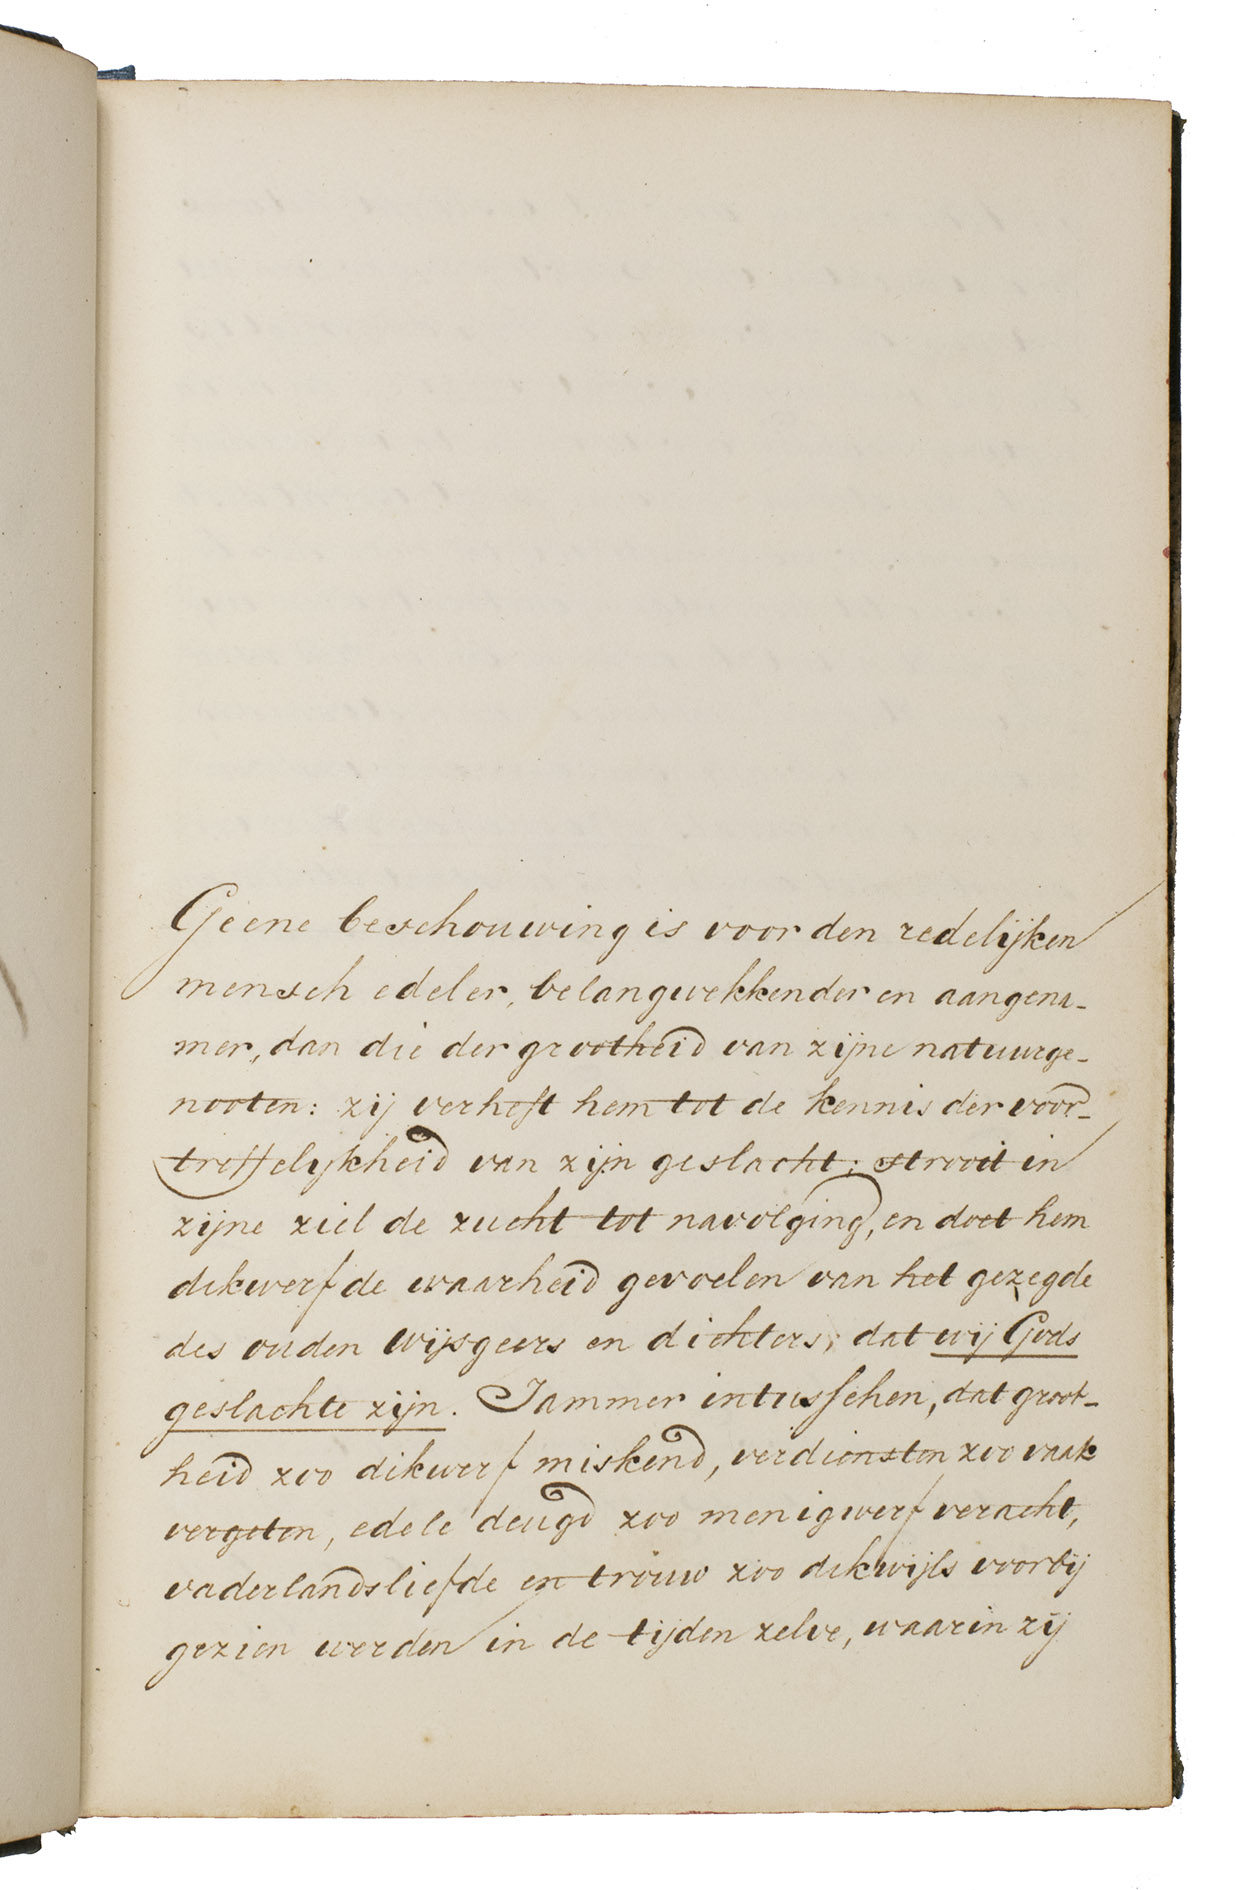 Geene beschouwing is voor den redelijken
mensch edeler, belangwekkender en aangena-
mer, dan die der grootheid van zijne natuurge-
nooten: zij verheft hem tot de kennis der voor-
treffelijkheid van zijn geslacht; strooit in
zijne ziel de zucht tot navolging, en doet hem
dikwerf de waarheid gevoelen van het gezegde
des ouden wijsgeers en dichters; dat wij Gods
geslachte zijn. Jammer intusschen, dat groot-
heid zoo dikwerf miskend, verdiensten zoo vaak
vergeten, edele deugd zoo menigwerf veracht,
vaderlandsliefde en trouw zoo dikwijls voorbij
gezien werden in de tijden zelve, waarin zij